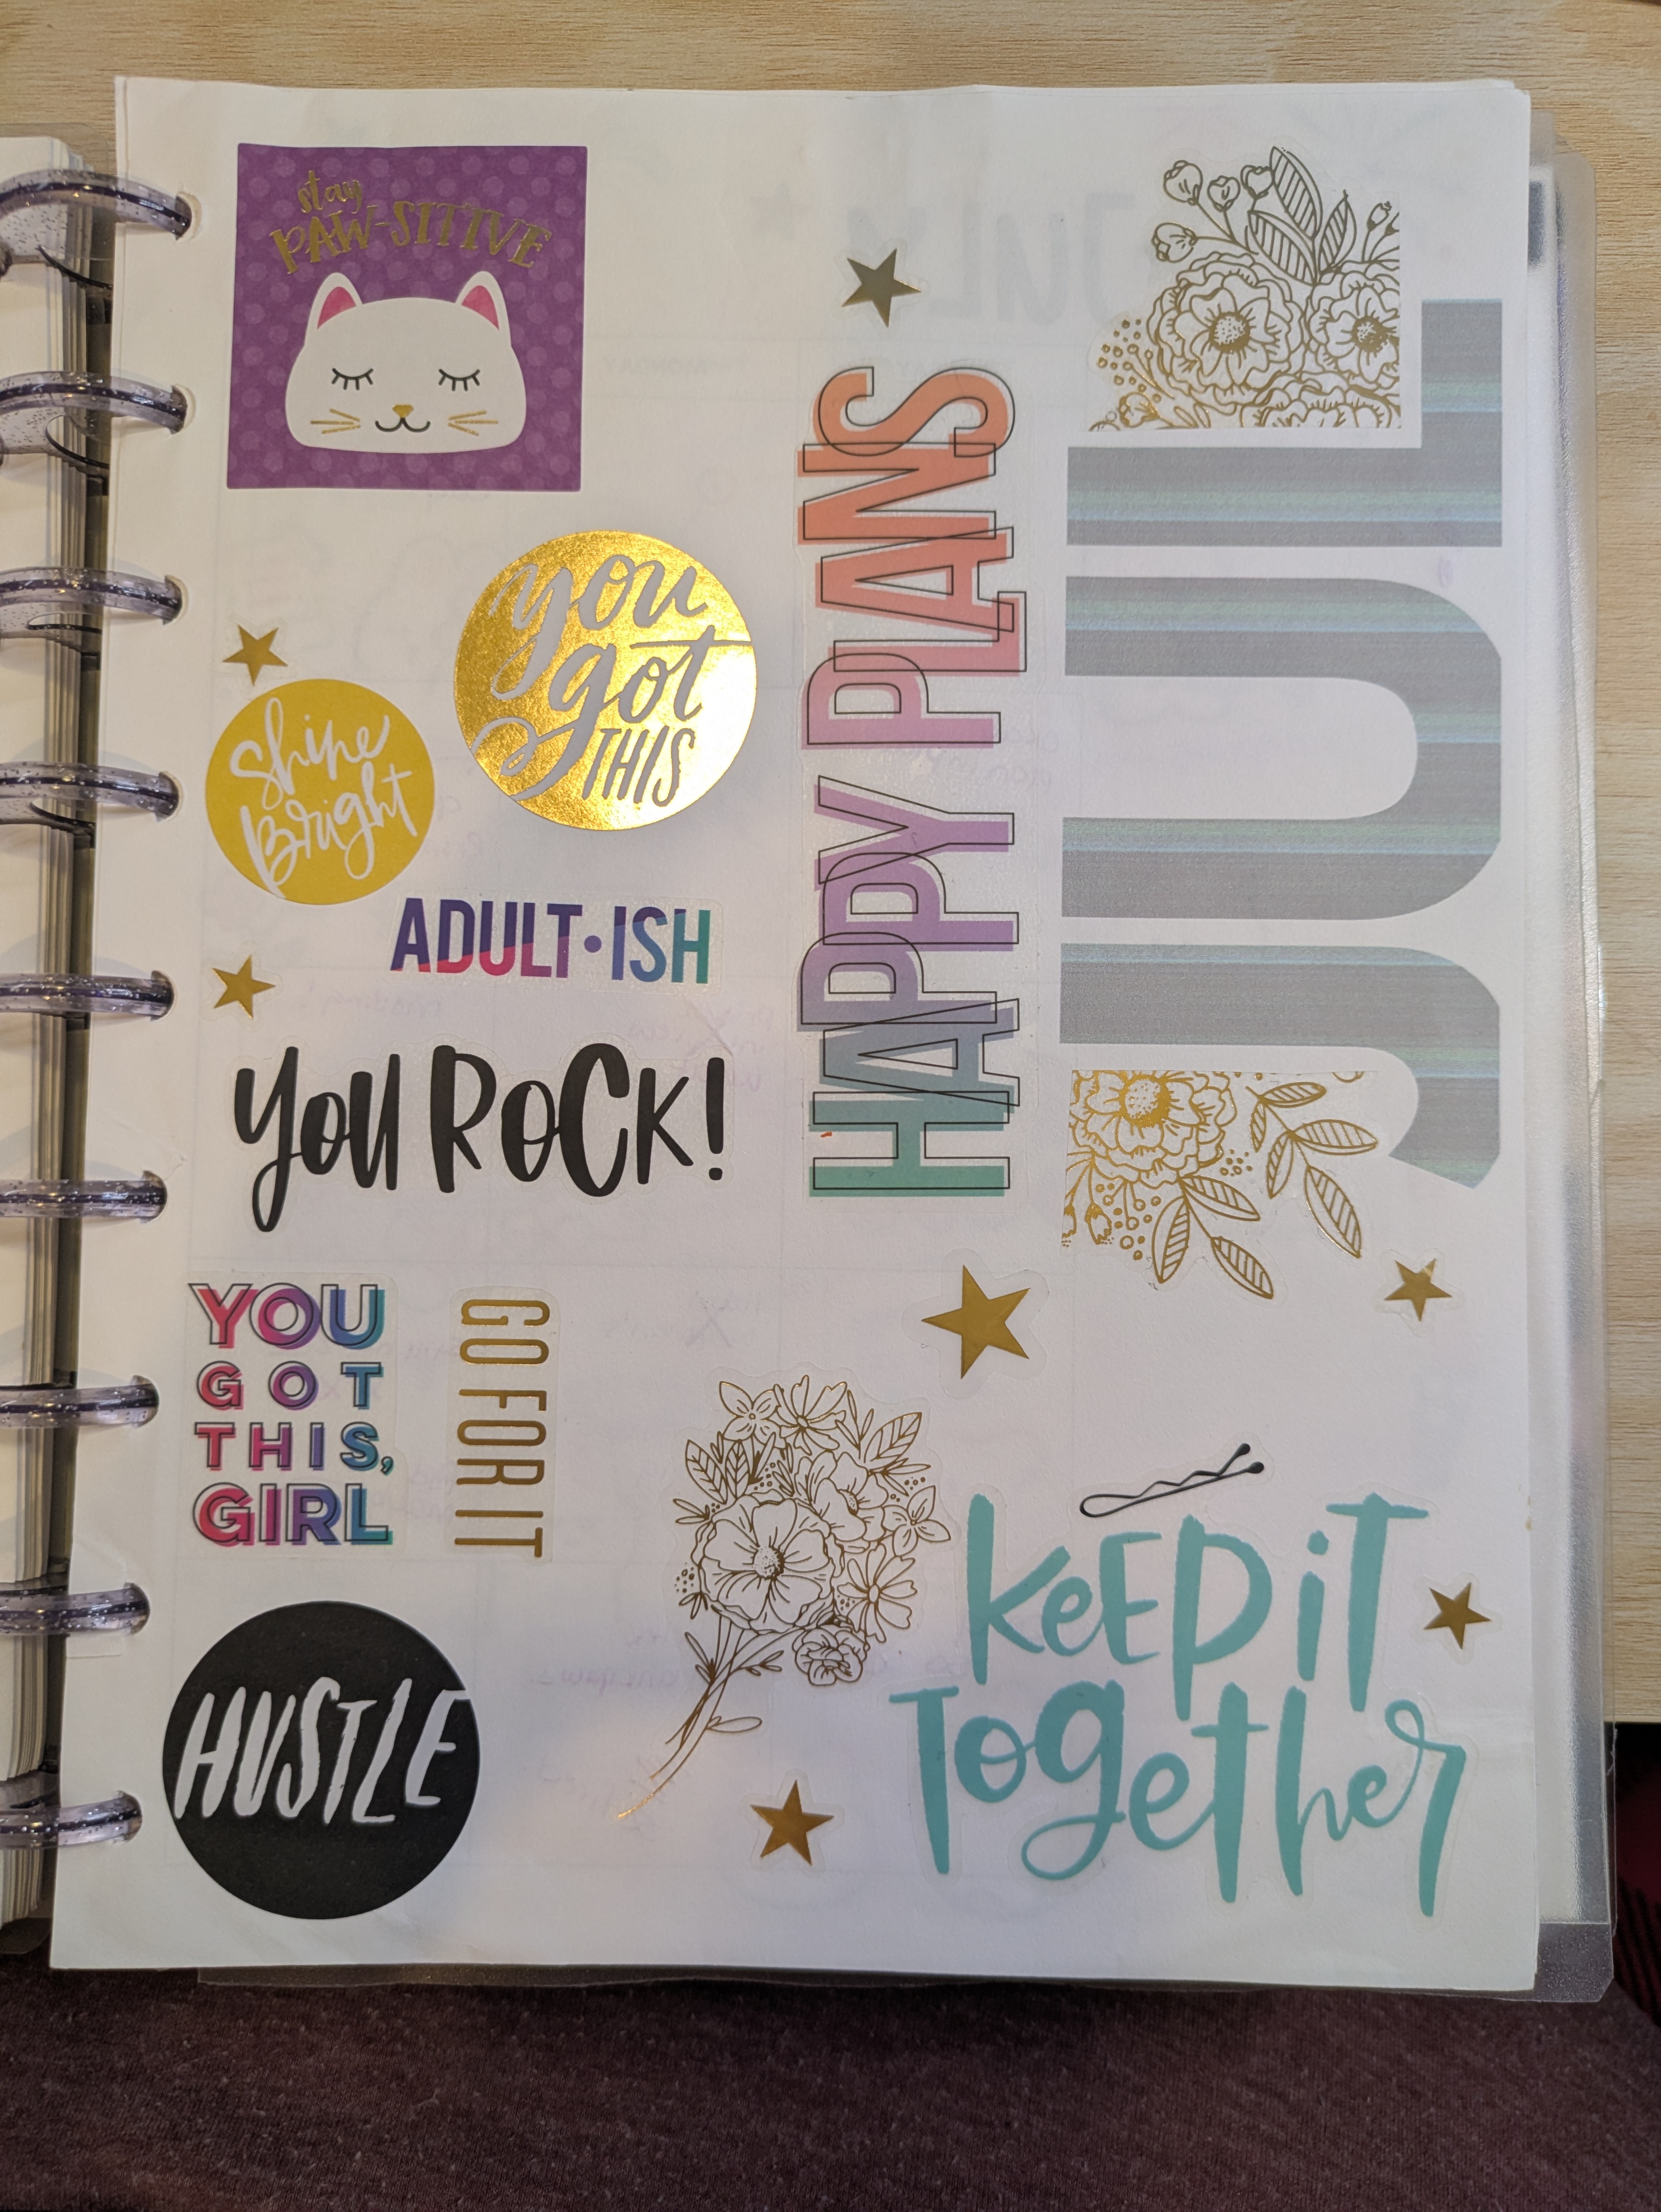 stay
PAW-SITIVE
you
got
THIS
shine
Bright
ADULT·ISH
you ROCK!
YOU
GOT
THIS,
GIRL
GO FOR IT
HUSTLE
HAPPY PLANS
JUL
KEEP iT
Together
JULY
MONDAY